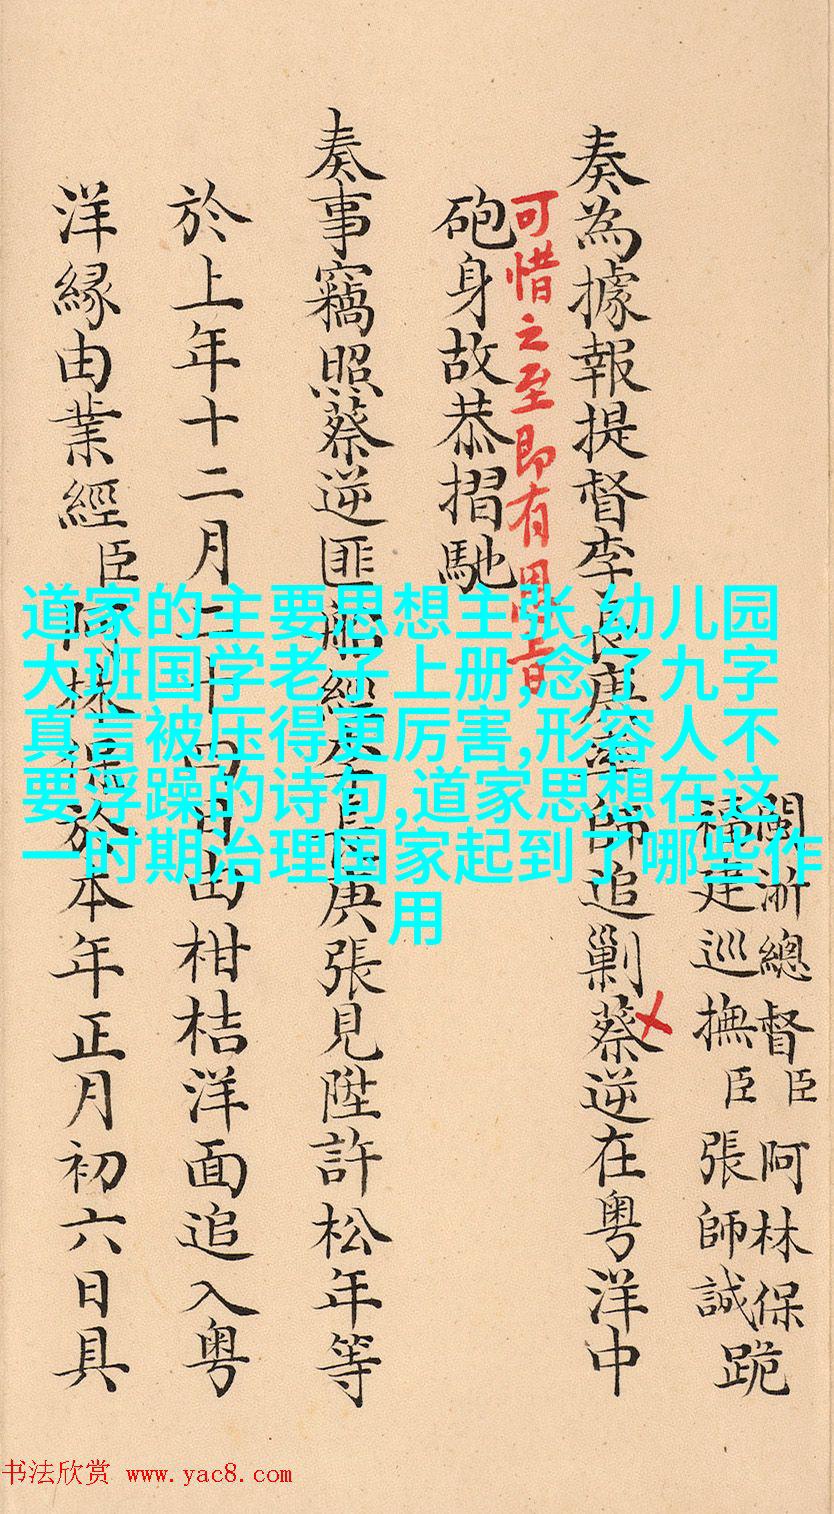 閩浙總督臣阿林保
福建巡撫臣張師誠
跪
奏為據報提督李長庚率師追剿蔡逆在粵洋中
可惜之至即有恩旨
砲身故恭摺馳
奏事竊照蔡逆匪船經李長庚張見陞許松年等
於上年十二月二十四日由柑桔洋面追入粵
洋緣由業經臣阿林保於本年正月初六日具
道家的主要思想主张,幼儿园
大班国学老子上册,念了九字
真言被压得更厉害,形容人不
要浮躁的诗句,道家思想在这
一时期治理国家起到了哪些作
用
书法欣赏 www.yac8.com